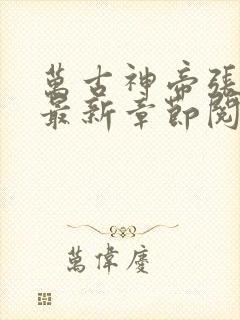 萬古神帝張
最新章節閱
萬偉慶